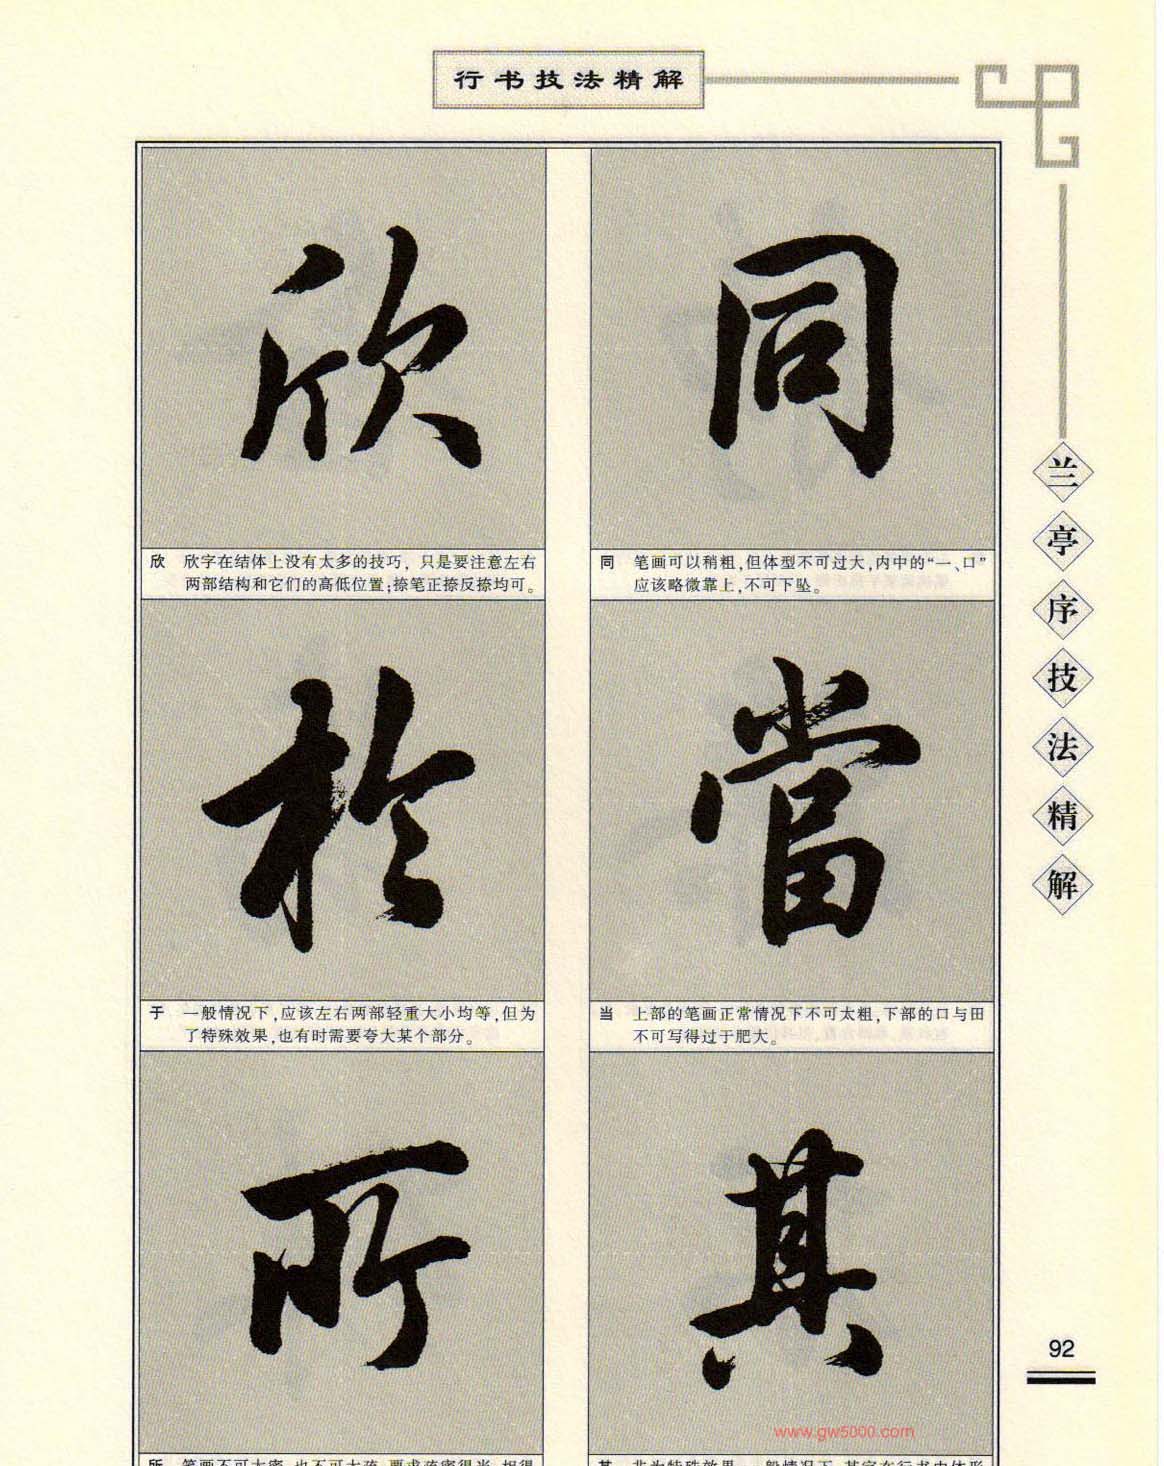 行书技法精解
兰亭序技法精解
同
同 笔画可以稍粗,但体型不可过大,内中的“一、口”
应该略微靠上,不可下坠。
當
当 上部的笔画正常情况下不可太粗,下部的口与田
不可写得过于肥大。
其
欣
欣 欣字在结体上没有太多的技巧，只是要注意左右
两部结构和它们的高低位置;捺笔正捺反捺均可。
於
于 一般情况下,应该左右两部轻重大小均等,但为
了特殊效果,也有时需要夸大某个部分。
所
92
www.gw5000.com